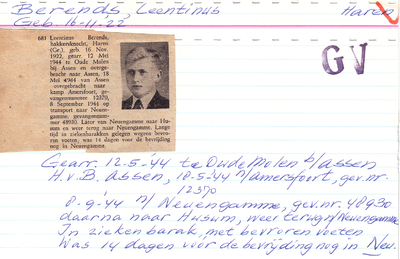 Berends, Leentinus
Haren
Geb. 16-11-22
GV
681 Leentinus Berends,
bakkersknecht, Haren
(Gr.), geb. 16 Nov.
1922, gearr. 12 Mei
1944 te Oude Molen
bij Assen en overge-
bracht naar Assen, 18
Mei 4944 van Assen
overgebracht naar
kamp Amersfoort, ge-
vangennummer 12370,
8 September 1944 op
transport naar Neuen-
gamme, gevangennum-
mer 48930. Later van Neuengamme naar Hu-
sum en weer terug naar Neuengamme. Lange
tijd in ziekenbarakken gelegen wegens bevro-
ren voeten, was 14 dagen voor de bevrijding
nog in Neuengamme
Gearr. 12-5-44 te Oude Molen b/assen
H.v.B. assen, 18-5-44 n/amersfoort, gev.nr.
12370
8-9-44 n/ Neuengamme, gev.nr. 48930
daarna naar Husum, weer terug n/Neuengamme
In ziekenbarak, met bevroren voeten
Was 14 dagen voor de bevrijding nog in Neu.